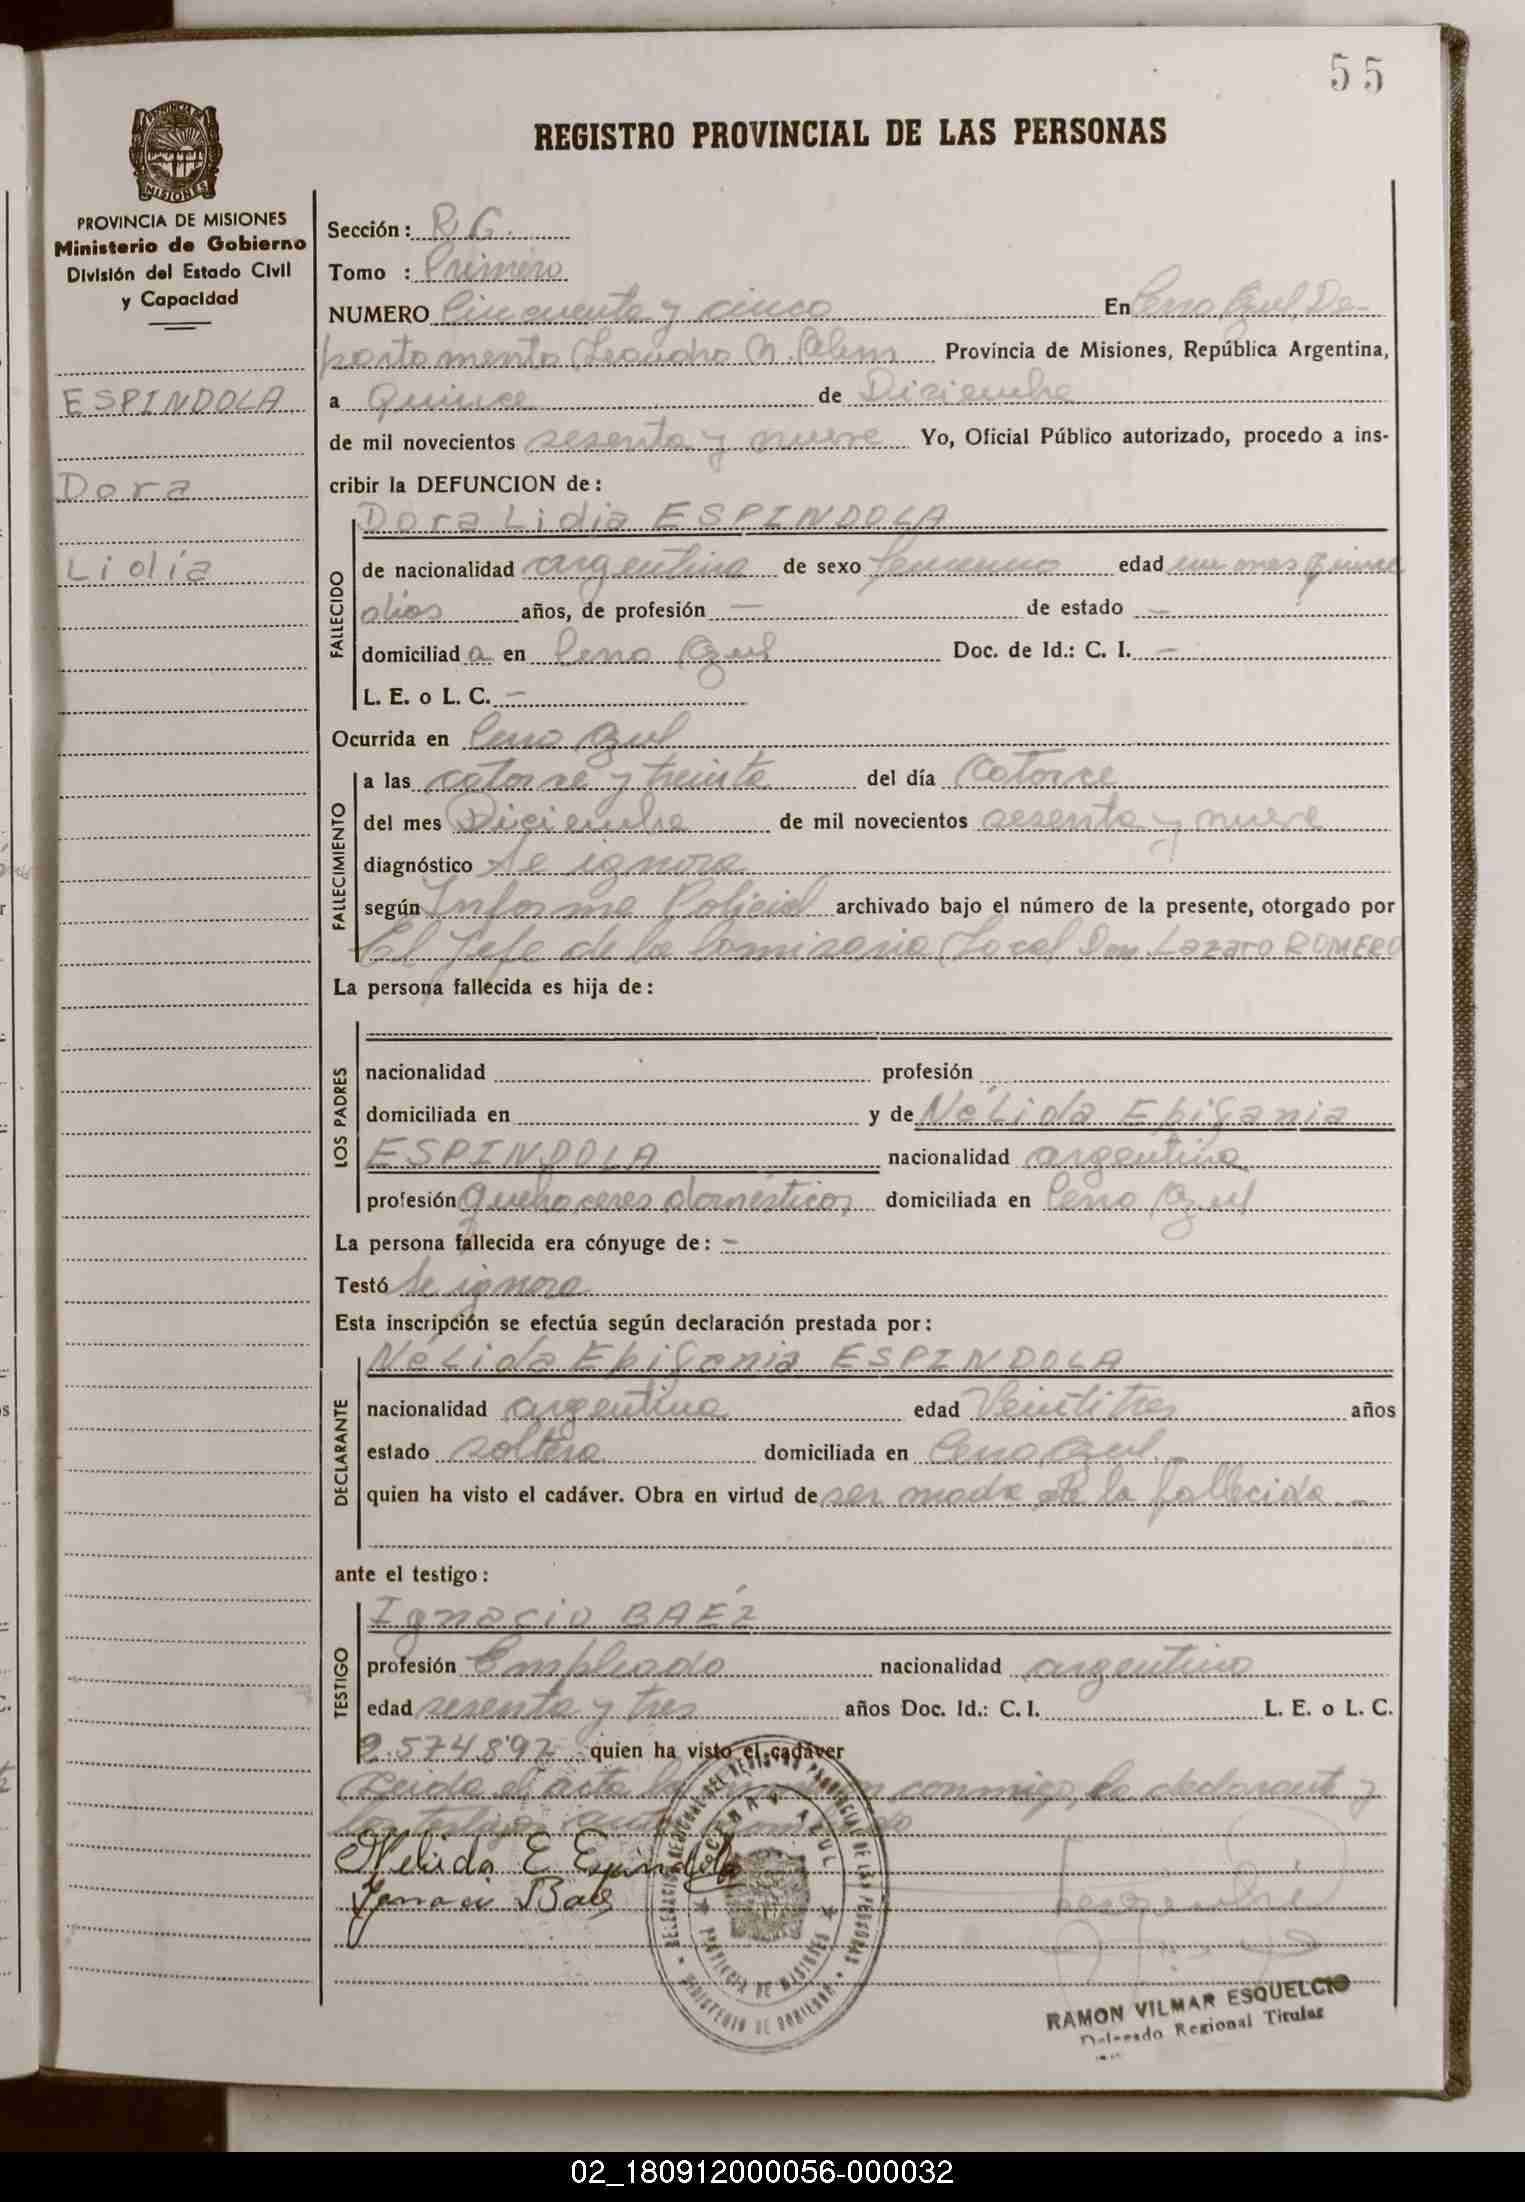 55
REGISTRO PROVINCIAL DE LAS PERSONAS
PROVINCIA DE MISIONES
Ministerio de Gobierno
División del Estado Civil
y Capacidad
ESPINDOLA
Dora
Lidia
Sección: R.G.
Tomo : Primero
NUMERO Cincuenta y cinco En Cerro Azul, De-
partamento Leandro N. Alem Provincia de Misiones, República Argentina,
a Quince de Diciembre
de mil novecientos sesenta y nueve Yo, Oficial Público autorizado, procedo a ins-
cribir la DEFUNCION de:
Dora Lidia ESPINDOLA
FALLECIDO
de nacionalidad argentina de sexo femenino edad un mes quince
dias años, de profesión — de estado —
domiciliada en Cerro Azul Doc. de Id.: C. I. —
L. E. o L. C. —
Ocurrida en Cerro Azul
FALLECIMIENTO
a las catorce y treinta del día Catorce
del mes Diciembre de mil novecientos sesenta y nueve
diagnóstico Se ignora
según Informe Policial archivado bajo el número de la presente, otorgado por
El Jefe de la Comisaria Local Don Lazaro ROMERO
La persona fallecida es hija de:
LOS PADRES
nacionalidad profesión
domiciliada en y de Nélida Epifania
ESPINDOLA nacionalidad argentina
profesión Quehaceres domésticos domiciliada en Cerro Azul
La persona fallecida era cónyuge de: —
Testó Se ignora
Esta inscripción se efectúa según declaración prestada por:
Nélida Epifania ESPINDOLA
DECLARANTE
nacionalidad argentina edad Veintitres años
estado soltera domiciliada en Cerro Azul.
quien ha visto el cadáver. Obra en virtud de ser madre de la fallecida.—
ante el testigo:
Ignacio BAÉZ
TESTIGO
profesión Empleado nacionalidad argentino
edad sesenta y tres años Doc. Id.: C. I. L. E. o L. C.
2.574.897 quien ha visto el cadáver
Leida el acta la conmigo, la declarante y
Nelida E Espindola
Baez
DELEGACION REGIONAL DEL REGISTRO PROVINCIAL DE LAS PERSONAS
CERRO AZUL
PROVINCIA DE MISIONES
MINISTERIO DE GOBIERNO
RAMON VILMAR ESQUELCIO
Delegado Regional Titular
02_180912000056-000032